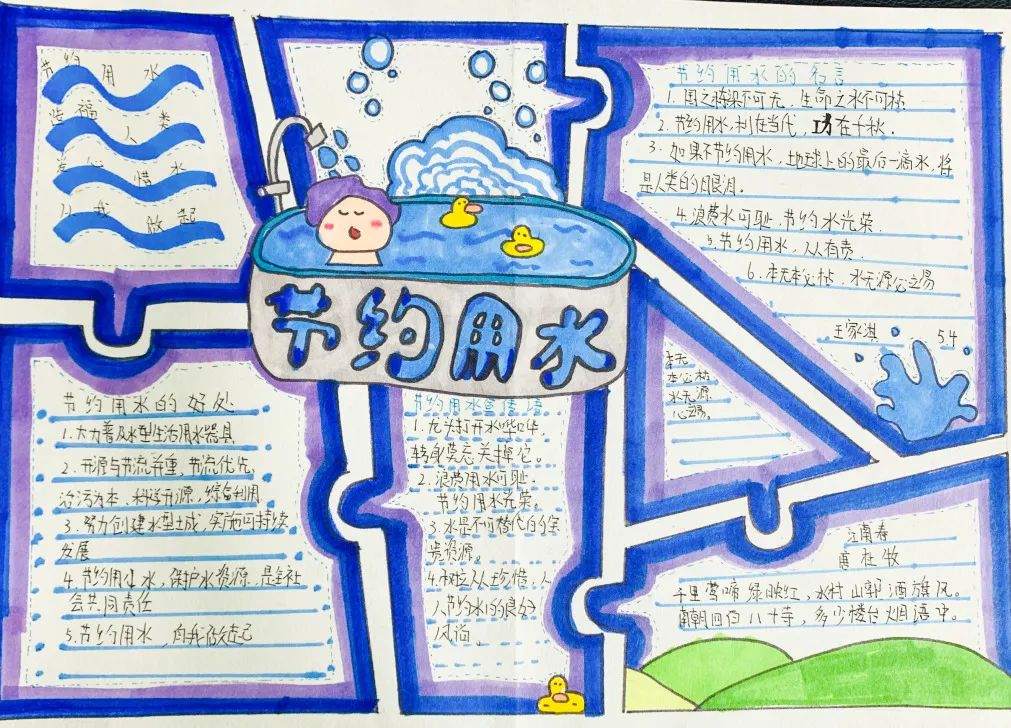 节约用水
造福人类
惜水
从我做起
节约用水
节约用水的名言
1.国之栋梁不可无,生命之水不可枯
2.节约用水,利在当代,功在千秋.
3.如果不节约用水,地球上的最后一滴水,将
是人类的眼泪。
4.浪费水可耻.节约水光荣.
5.节约用水,人人有责.
6.本无本必枯,水无源必之易
王家淇 54
本无
本必枯
水无源
心之易.
节约用水的好处
1.大力普及水型生活用水器具
2.开源与节流并重,节流优先,
治污为本,科学开源,综合利用
3.努力创建水型士成,实施可持续
发展
4.节约用水,保护水资源,是全社
会共同责任
5.节约用水,自我做起
节约用水宣传语
1.龙头打开水哗哗,
转身莫忘关掉它。
2.浪费用水可耻.
节约用水光荣。
3.水是不可替代的宝
贵资源。
4.树立人人珍惜,人
人节约水的良好
风尚。
江南春
唐 杜牧
千里莺啼绿映红,水村山郭酒旗风。
南朝四百八十寺,多少楼台烟雨中。